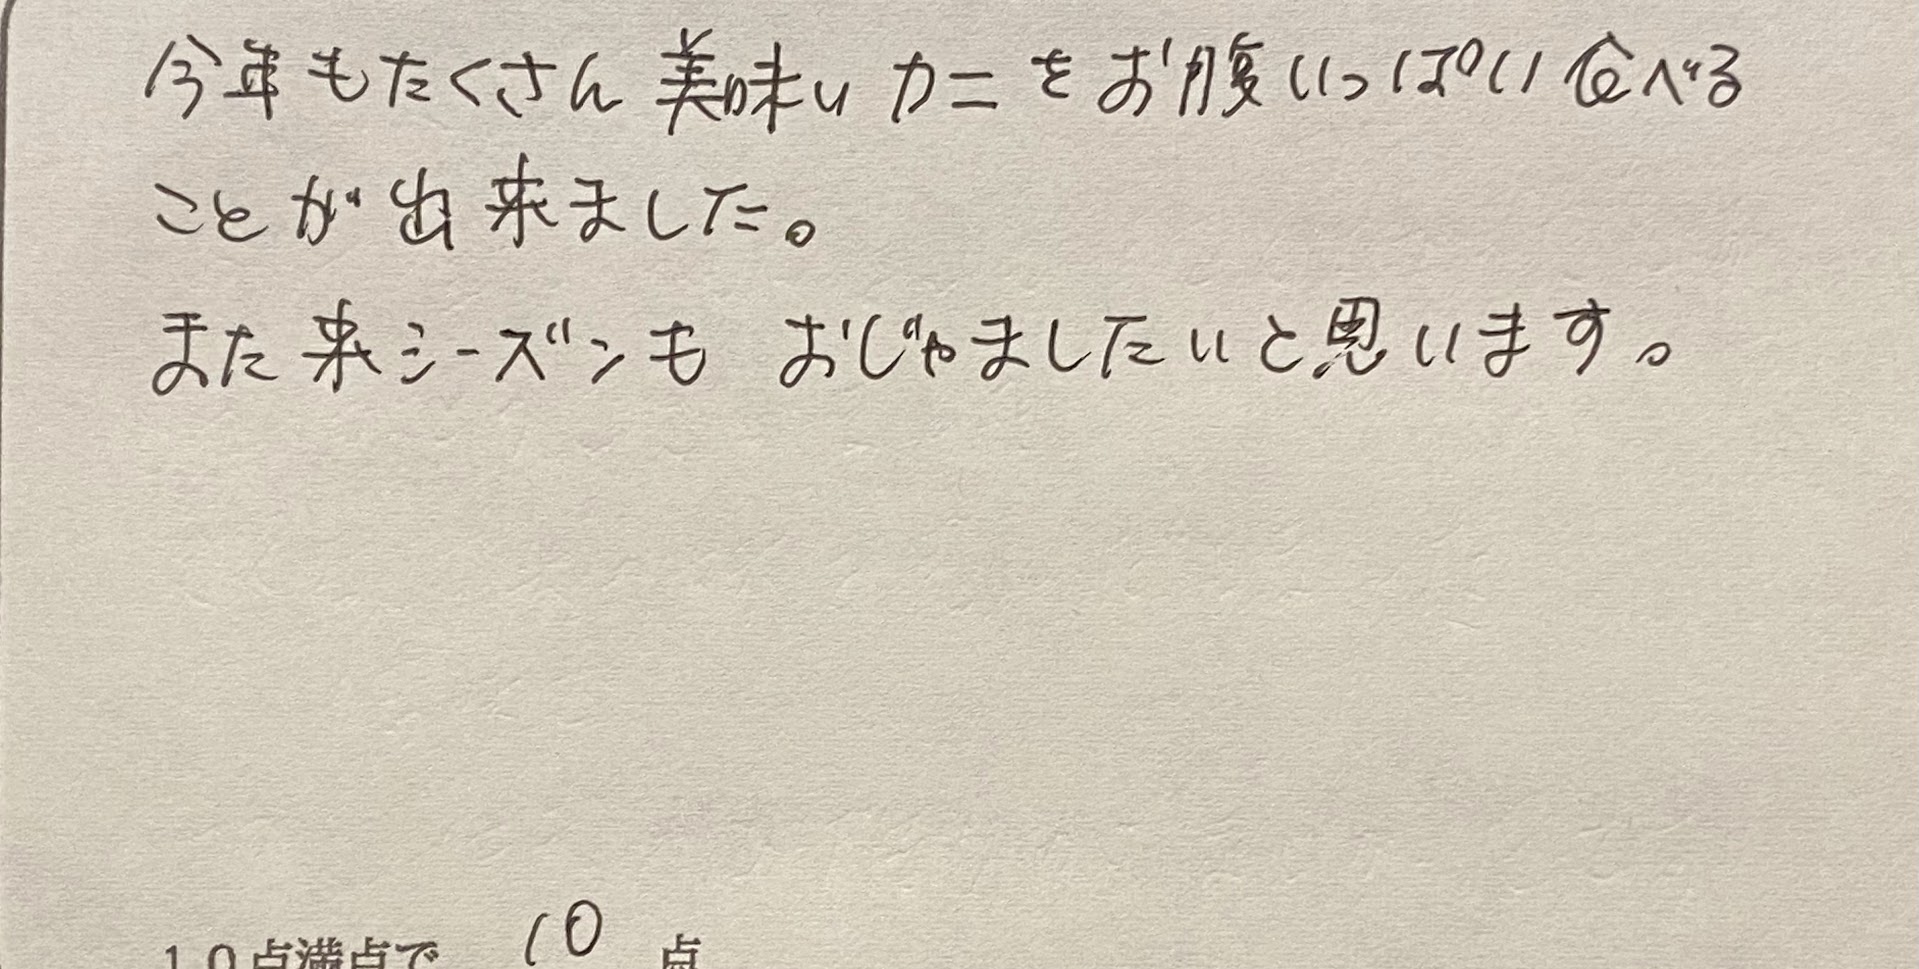 今年もたくさん美味いカニをお腹いっぱい食べる
ことが出来ました。
また来シーズンもおじゃましたいと思います。
10点満点で 10 点